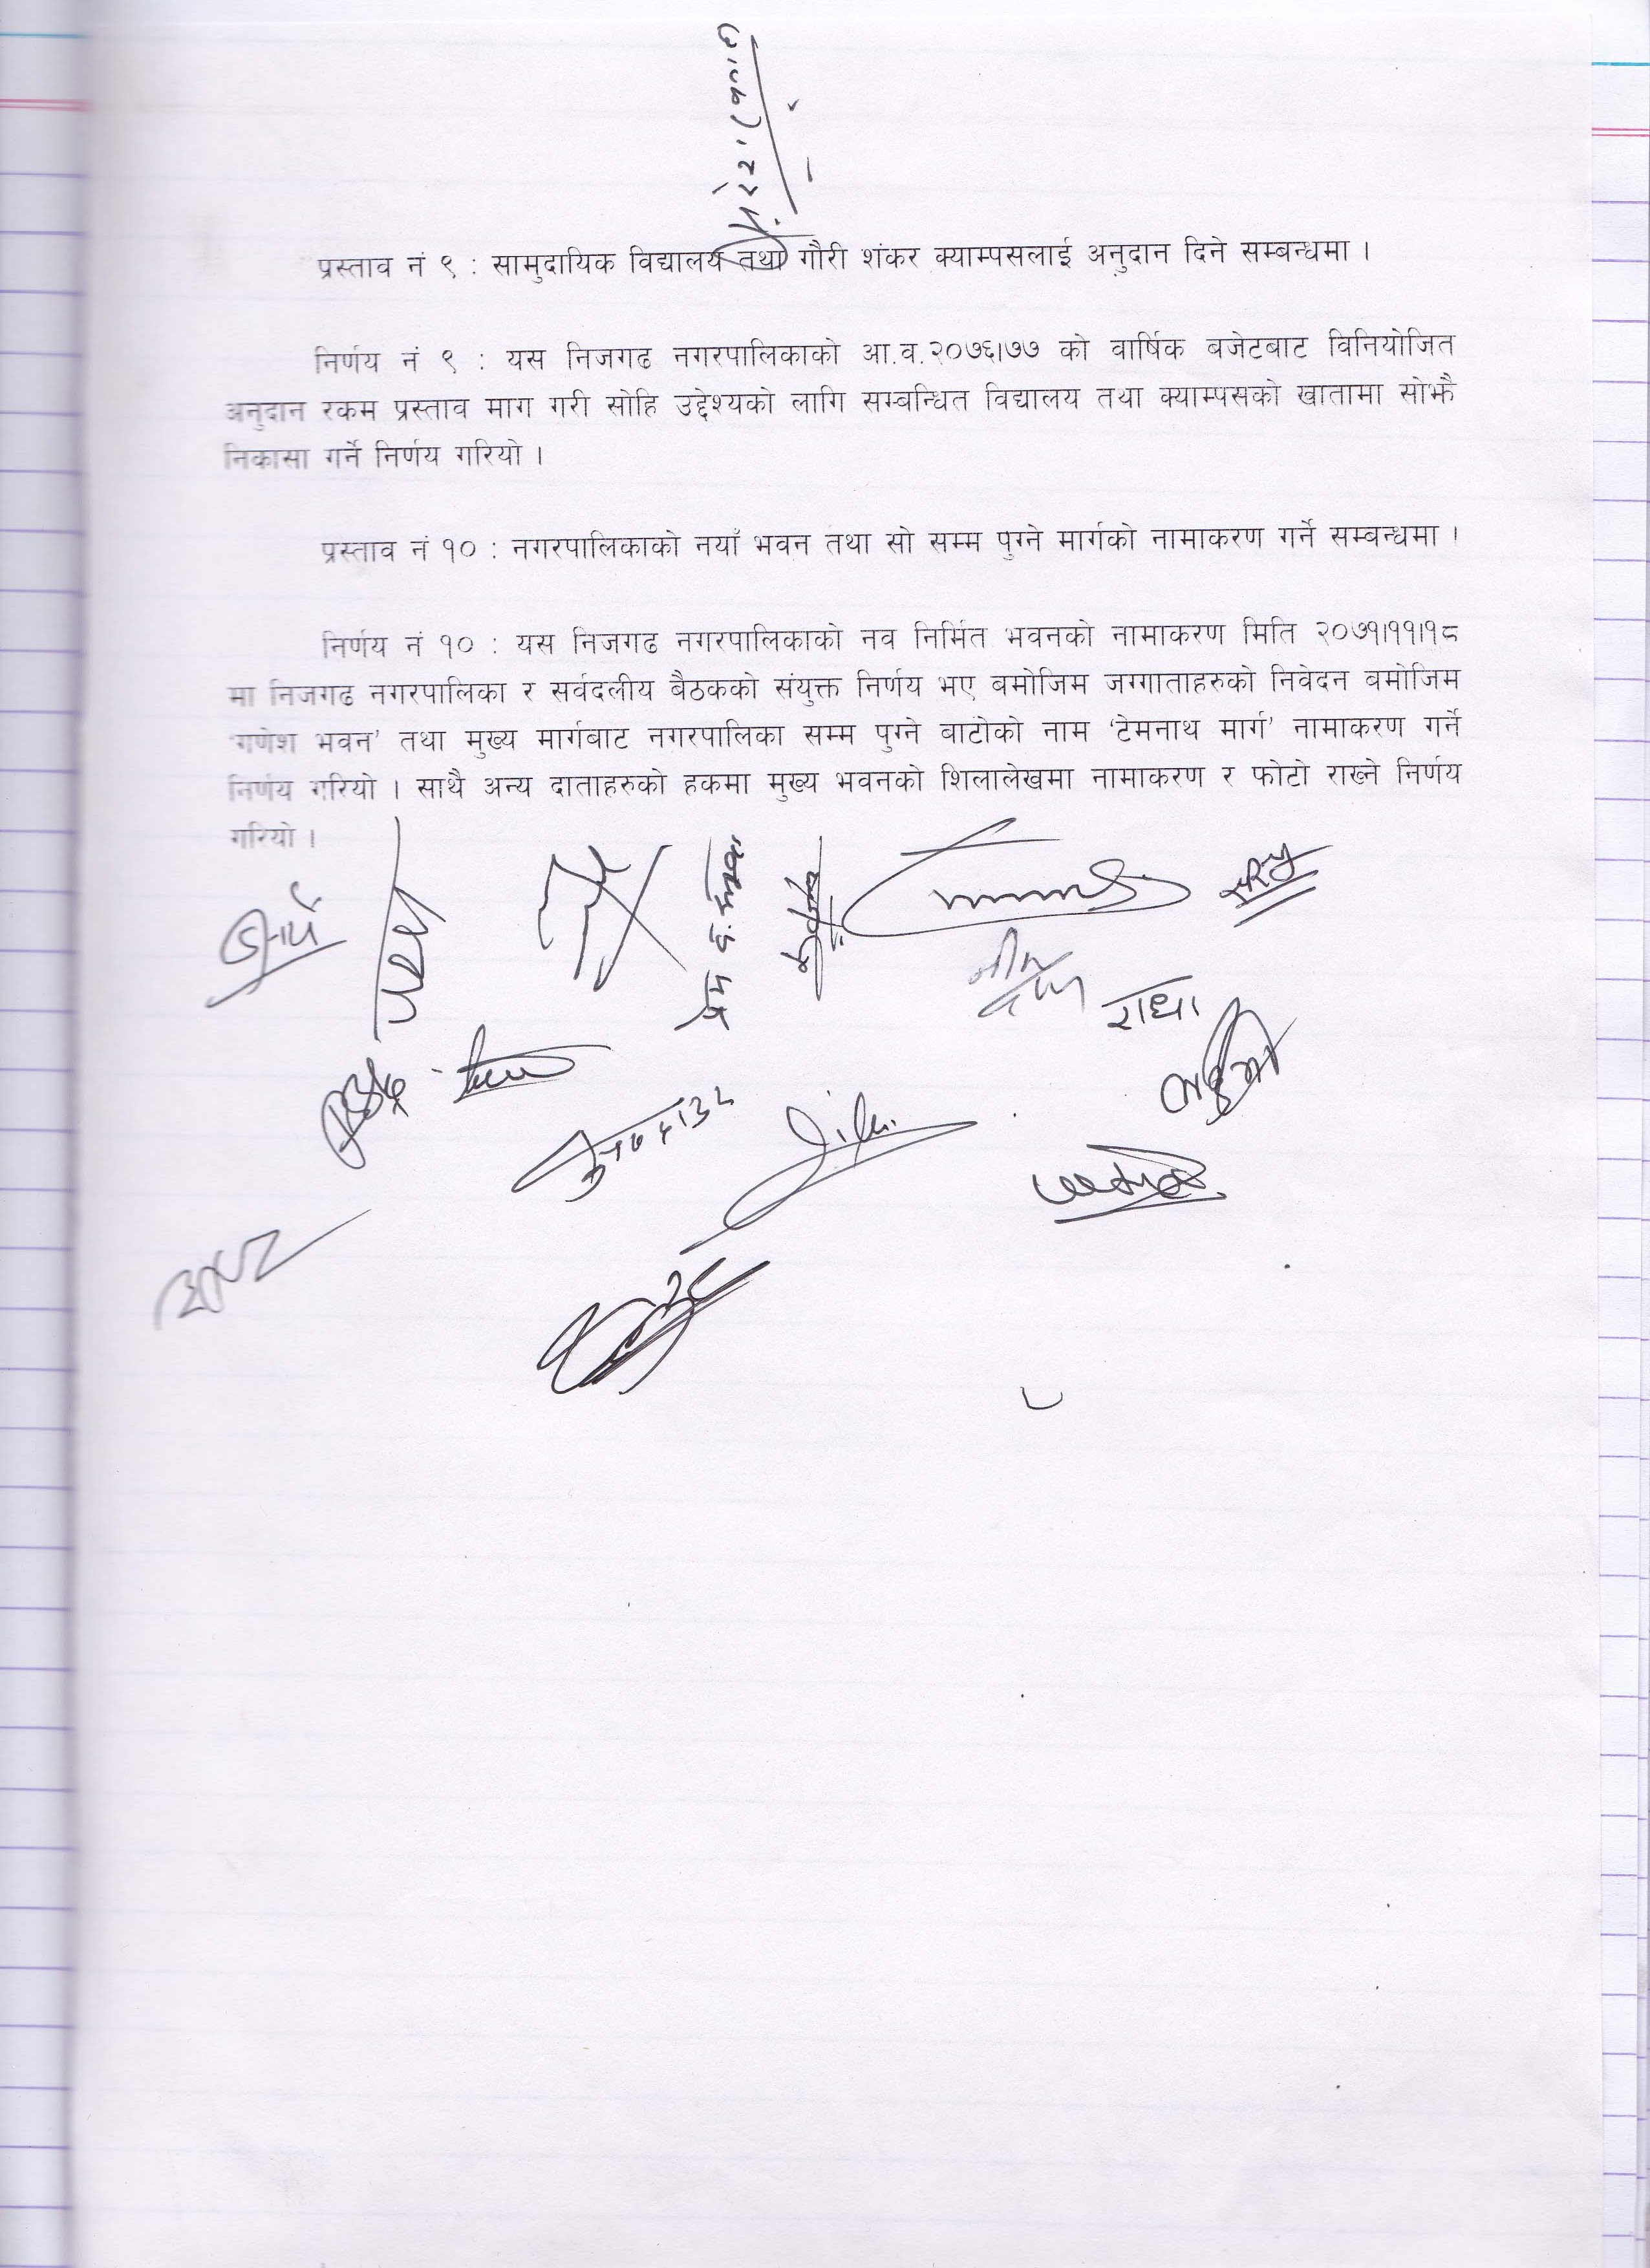 प्रस्ताव नं ९ : सामुदायिक विद्यालय तथा गौरी शंकर क्याम्पसलाई अनुदान दिने सम्बन्धमा ।
निर्णय नं ९ : यस निजगढ नगरपालिकाको आ.व.२०७६।७७ को वार्षिक बजेटबाट विनियोजित
अनुदान रकम प्रस्ताव माग गरी सोहि उद्देश्यको लागि सम्बन्धित विद्यालय तथा क्याम्पसको खातामा सोझै
निकासा गर्ने निर्णय गरियो ।
प्रस्ताव नं १० : नगरपालिकाको नयाँ भवन तथा सो सम्म पुग्ने मार्गको नामाकरण गर्ने सम्बन्धमा ।
निर्णय नं १० : यस निजगढ नगरपालिकाको नव निर्मित भवनको नामाकरण मिति २०७१।११।१८
मा निजगढ नगरपालिका र सर्वदलीय बैठकको संयुक्त निर्णय भए बमोजिम जग्गाताहरुको निवेदन बमोजिम
'गणेश भवन' तथा मुख्य मार्गबाट नगरपालिका सम्म पुग्ने बाटोको नाम 'टेमनाथ मार्ग' नामाकरण गर्ने
निर्णय गरियो । साथै अन्य दाताहरुको हकमा मुख्य भवनको शिलालेखमा नामाकरण र फोटो राख्ने निर्णय
गरियो ।
राधा